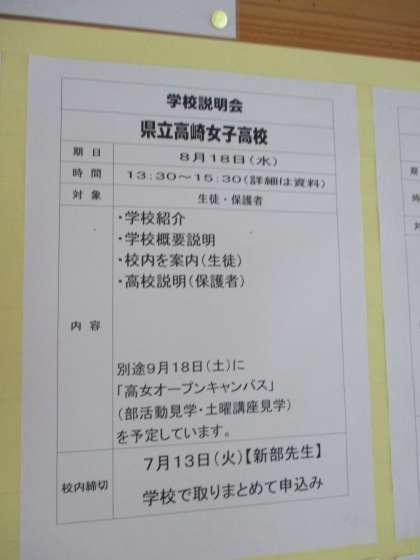 学校説明会
県立高崎女子高校
期日 8月18日(水)
時間 13:30～15:30(詳細は資料)
対象 生徒・保護者
内容
・学校紹介
・学校概要説明
・校内を案内(生徒)
・高校説明(保護者)
別途9月18日(土)に
「高女オープンキャンパス」
(部活動見学・土曜講座見学)
を予定しています。
校内締切 7月13日(火)【新部先生】
学校で取りまとめて申込み